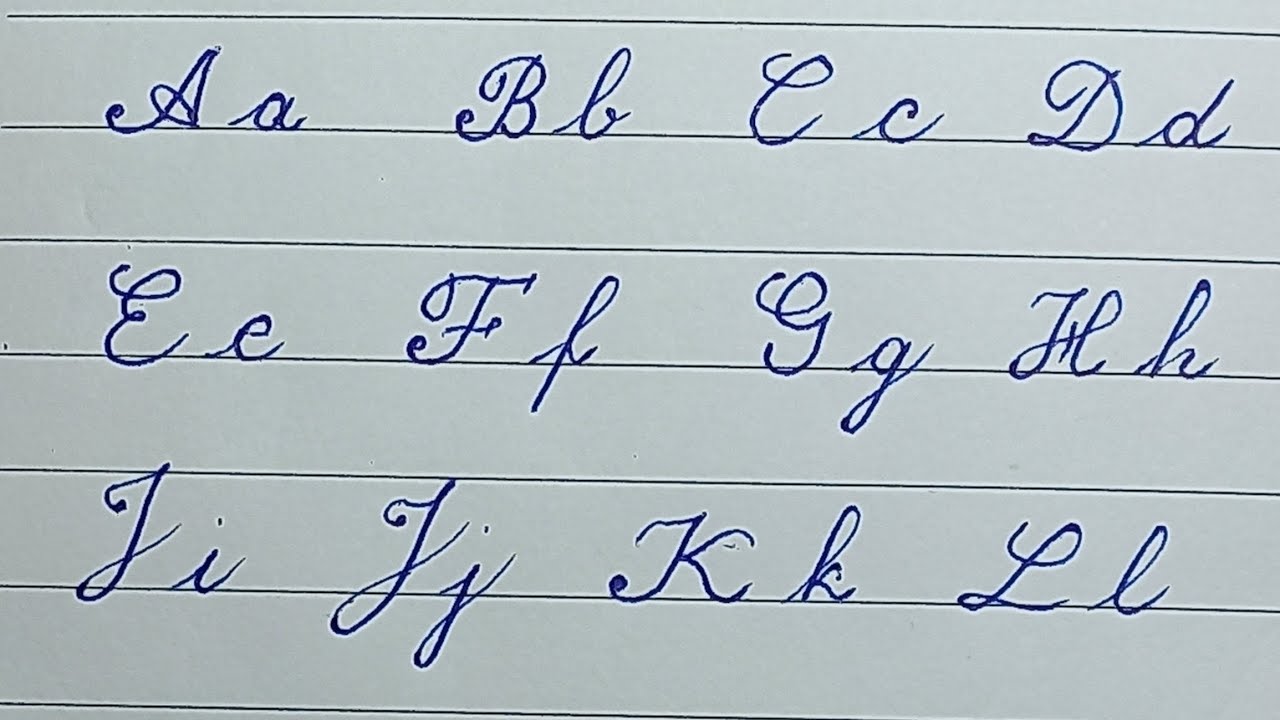 Aa Bb Cc Dd
Ee Ff Gg Hh
Ii Jj Kk Ll